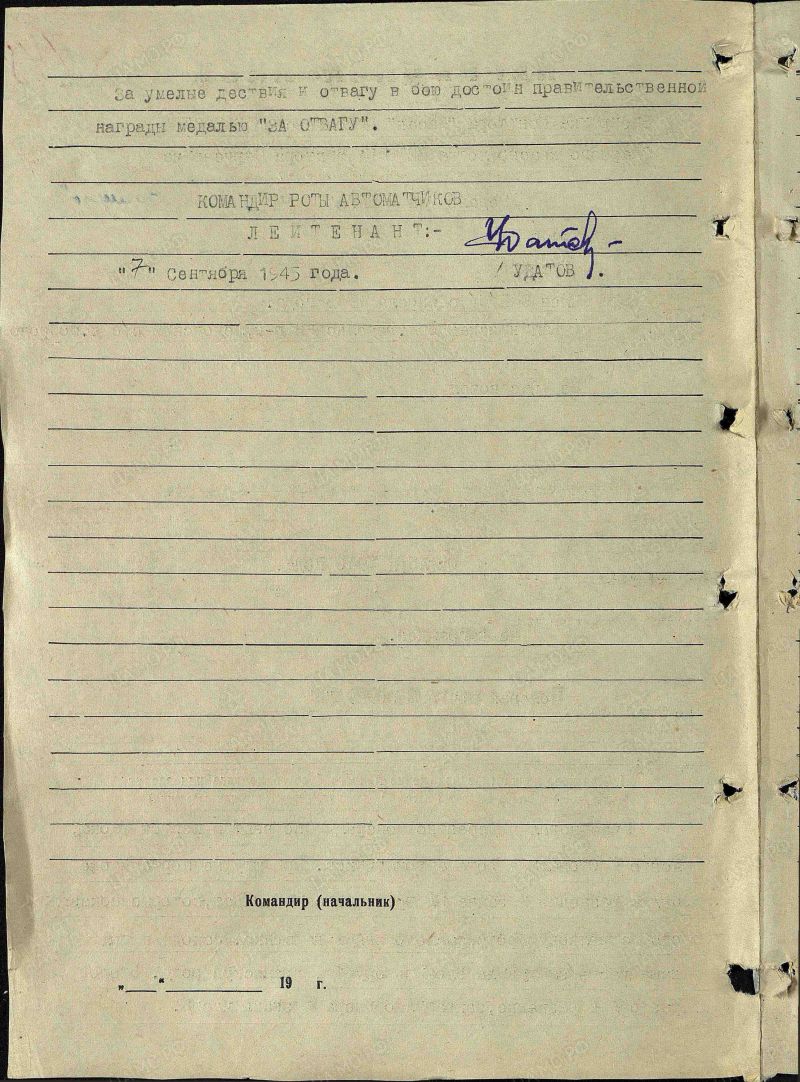 За умелые дествия и отвагу в бою достоин правительственной
награды медалью "ЗА ОТВАГУ".
КОМАНДИР РОТЫ АВТОМАТЧИКОВ
ЛЕЙТЕНАНТ:-
"7" Сентября 1945 года.
/ УДАТОВ /.
Командир (начальник)
„ “ 19 г.